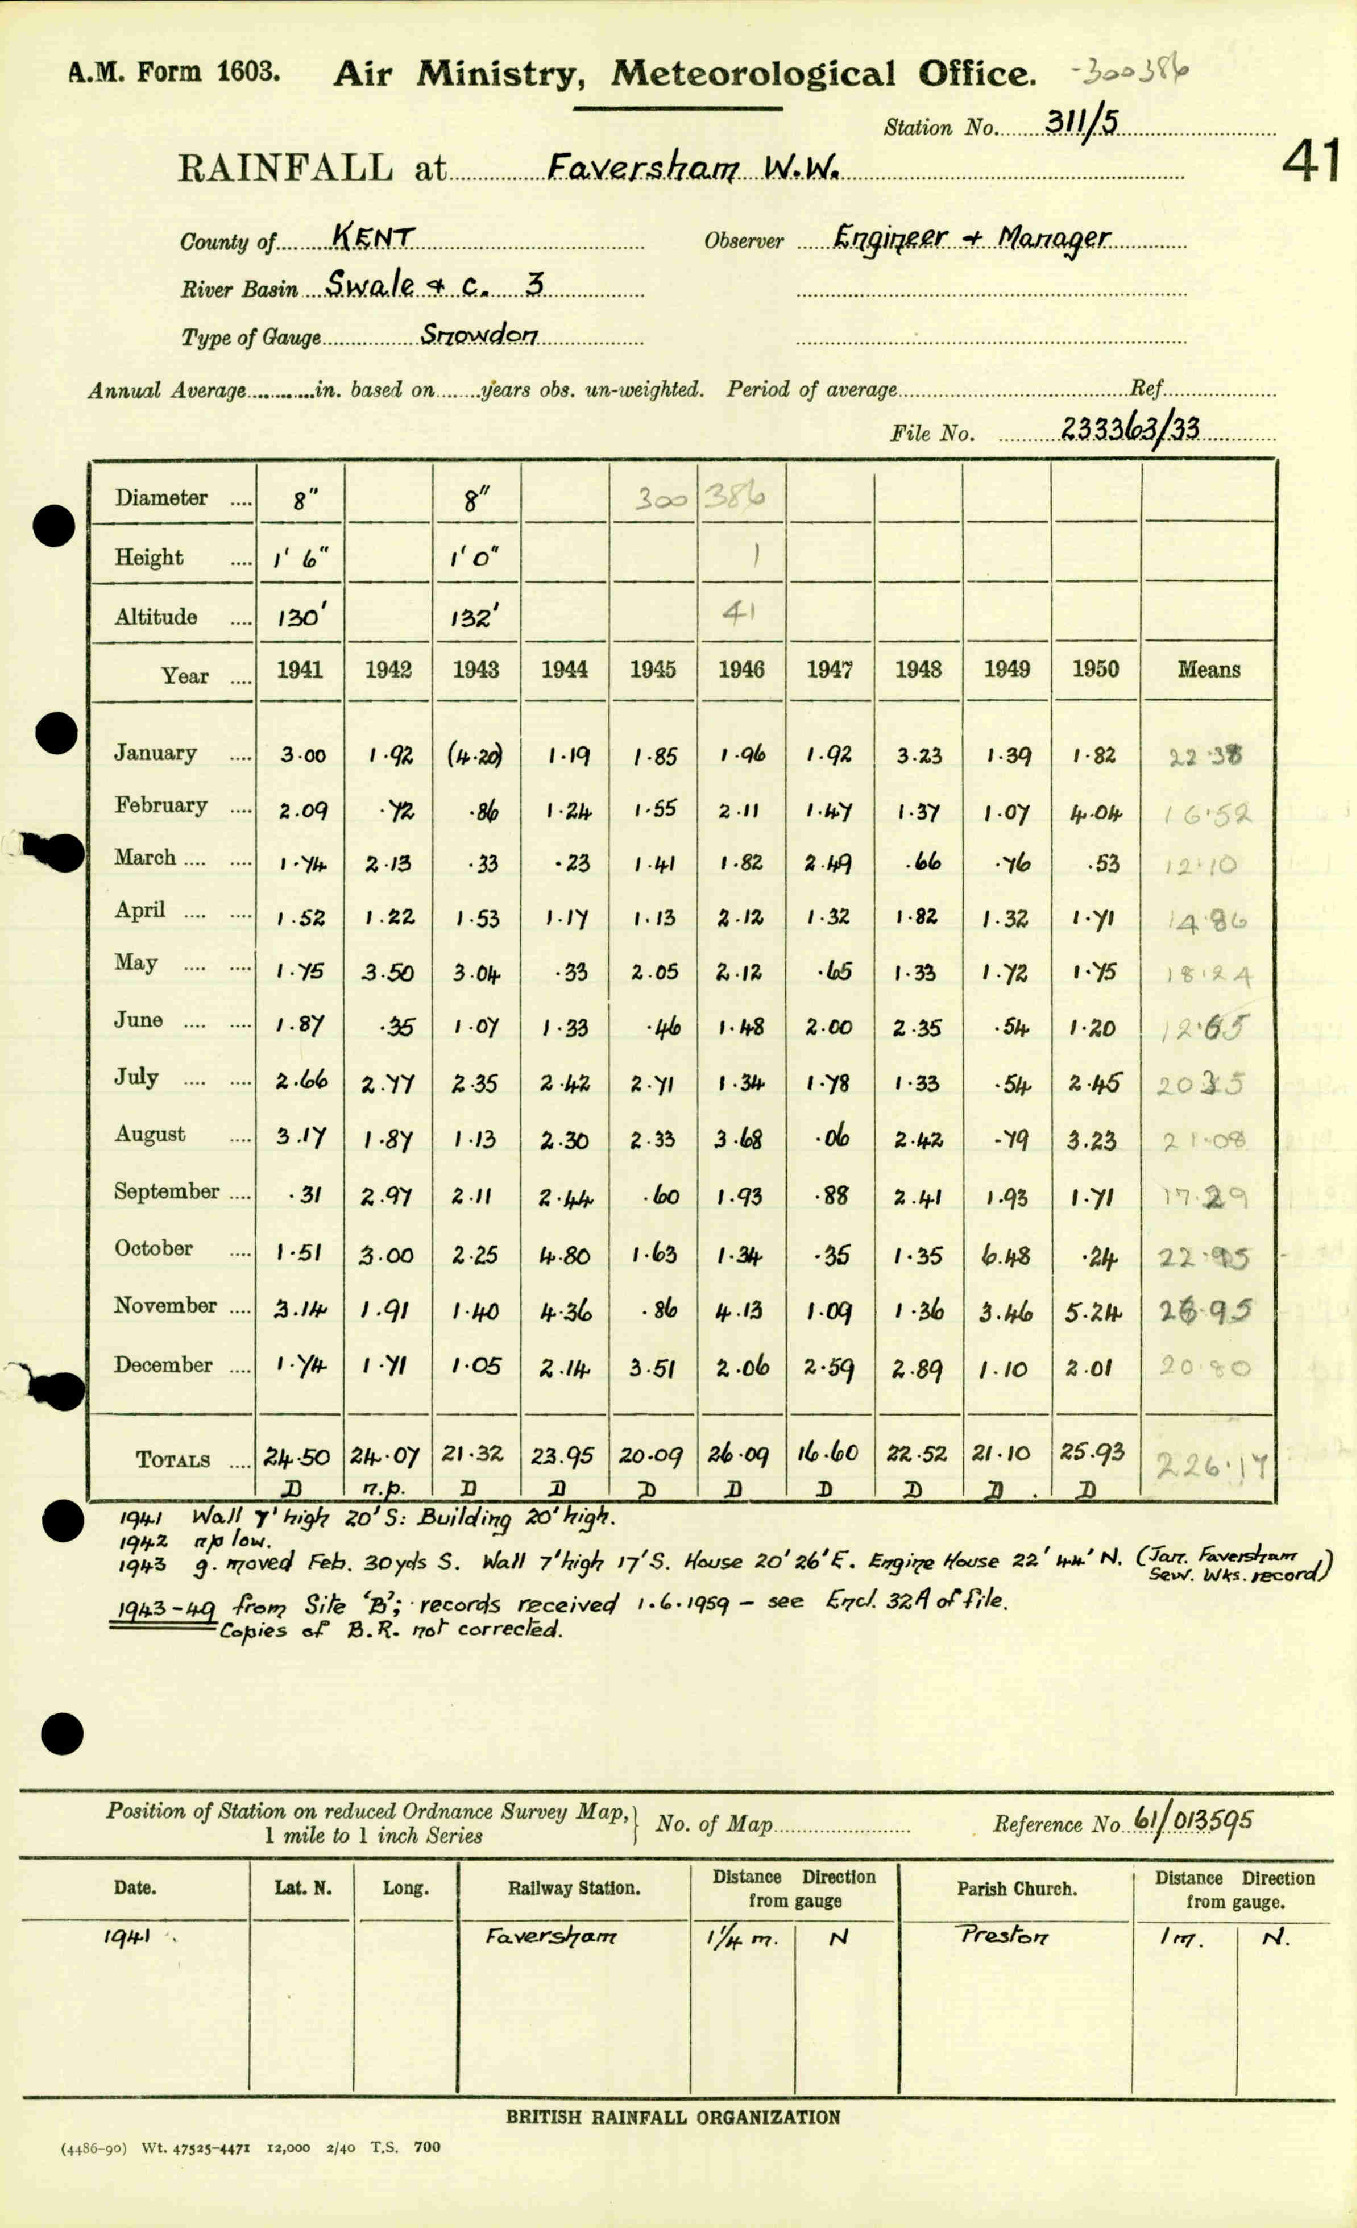 A.M. Form 1603. Air Ministry, Meteorological Office. -300386
Station No. 311/5
41
RAINFALL at Faversham W.W.
County of KENT Observer Engineer + Manager
River Basin Swale & c. 3
Type of Gauge Snowdon
Annual Average in. based on years obs. un-weighted. Period of average Ref
File No. 233363/33
Diameter .... 8" 8" 300 386
Height .... 1' 6" 1' 0" 1
Altitude .... 130' 132' 41
Year .... 1941 1942 1943 1944 1945 1946 1947 1948 1949 1950 Means
January .... 3.00 1.92 (4.20) 1.19 1.85 1.96 1.92 3.23 1.39 1.82 22.38
February .... 2.09 .72 .86 1.24 1.55 2.11 1.47 1.37 1.07 4.04 16.52
March .... .... 1.74 2.13 .33 .23 1.41 1.82 2.49 .66 .76 .53 12.10
April .... .... 1.52 1.22 1.53 1.17 1.13 2.12 1.32 1.82 1.32 1.71 14.86
May .... .... 1.75 3.50 3.04 .33 2.05 2.12 .65 1.33 1.72 1.75 18.24
June .... .... 1.87 .35 1.07 1.33 .46 1.48 2.00 2.35 .54 1.20 12.65
July .... .... 2.66 2.77 2.35 2.42 2.71 1.34 1.78 1.33 .54 2.45
August .... 3.17 1.87 1.13 2.30 2.33 3.68 .06 2.42 .79 3.23 21.08
September .... .31 2.97 2.11 2.44 .60 1.93 .88 2.41 1.93 1.71 17.29
October .... 1.51 3.00 2.25 4.80 1.63 1.34 .35 1.35 6.48 .24 22.95
November .... 3.14 1.91 1.40 4.36 .86 4.13 1.09 1.36 3.46 5.24 26.95
December .... 1.74 1.71 1.05 2.14 3.51 2.06 2.59 2.89 1.10 2.01 20.80
TOTALS .... 24.50 24.07 21.32 23.95 20.09 26.09 16.60 22.52 21.10 25.93 226.17
D n.p. D D D D D D D D
1941 Wall 7' high 20' S: Building 20' high.
1942 n/p low.
1943 g. moved Feb. 30yds S. Wall 7' high 17' S. House 20' 26' E. Engine House 22' 44' N. (Jan. Faversham Sew. Wks. record)
1943-49 from Site 'B'; records received 1.6.1959 - see Encl. 32A of file.
Copies of B.R. not corrected.
Position of Station on reduced Ordnance Survey Map, 1 mile to 1 inch Series No. of Map Reference No 61/013595
Date. Lat. N. Long. Railway Station. Distance Direction from gauge Parish Church. Distance Direction from gauge.
1941 Faversham 1¼ m. N Preston 1 m. N.
BRITISH RAINFALL ORGANIZATION
(4486-90) Wt. 47525-4471 12,000 2/40 T.S. 700